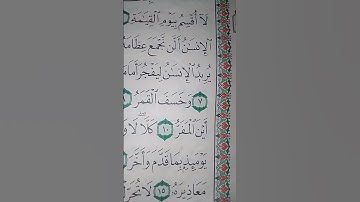 لَآ أُقْسِمُ بِيَوْمِ ٱلْقِيَـٰمَةِ
ٱلْإِنسَـٰنُ أَلَّن نَّجْمَعَ عِظَامَهُ
يُرِيدُ ٱلْإِنسَـٰنُ لِيَفْجُرَ أَمَامَ
٧ وَخَسَفَ ٱلْقَمَرُ
أَيْنَ ٱلْمَفَرُّ ١٠ كَلَّا لَا وَ
يَوْمَئِذٍۭ بِمَا قَدَّمَ وَأَخَّرَ
مَعَاذِيرَهُۥ ١٥ لَا تُحَرِّ